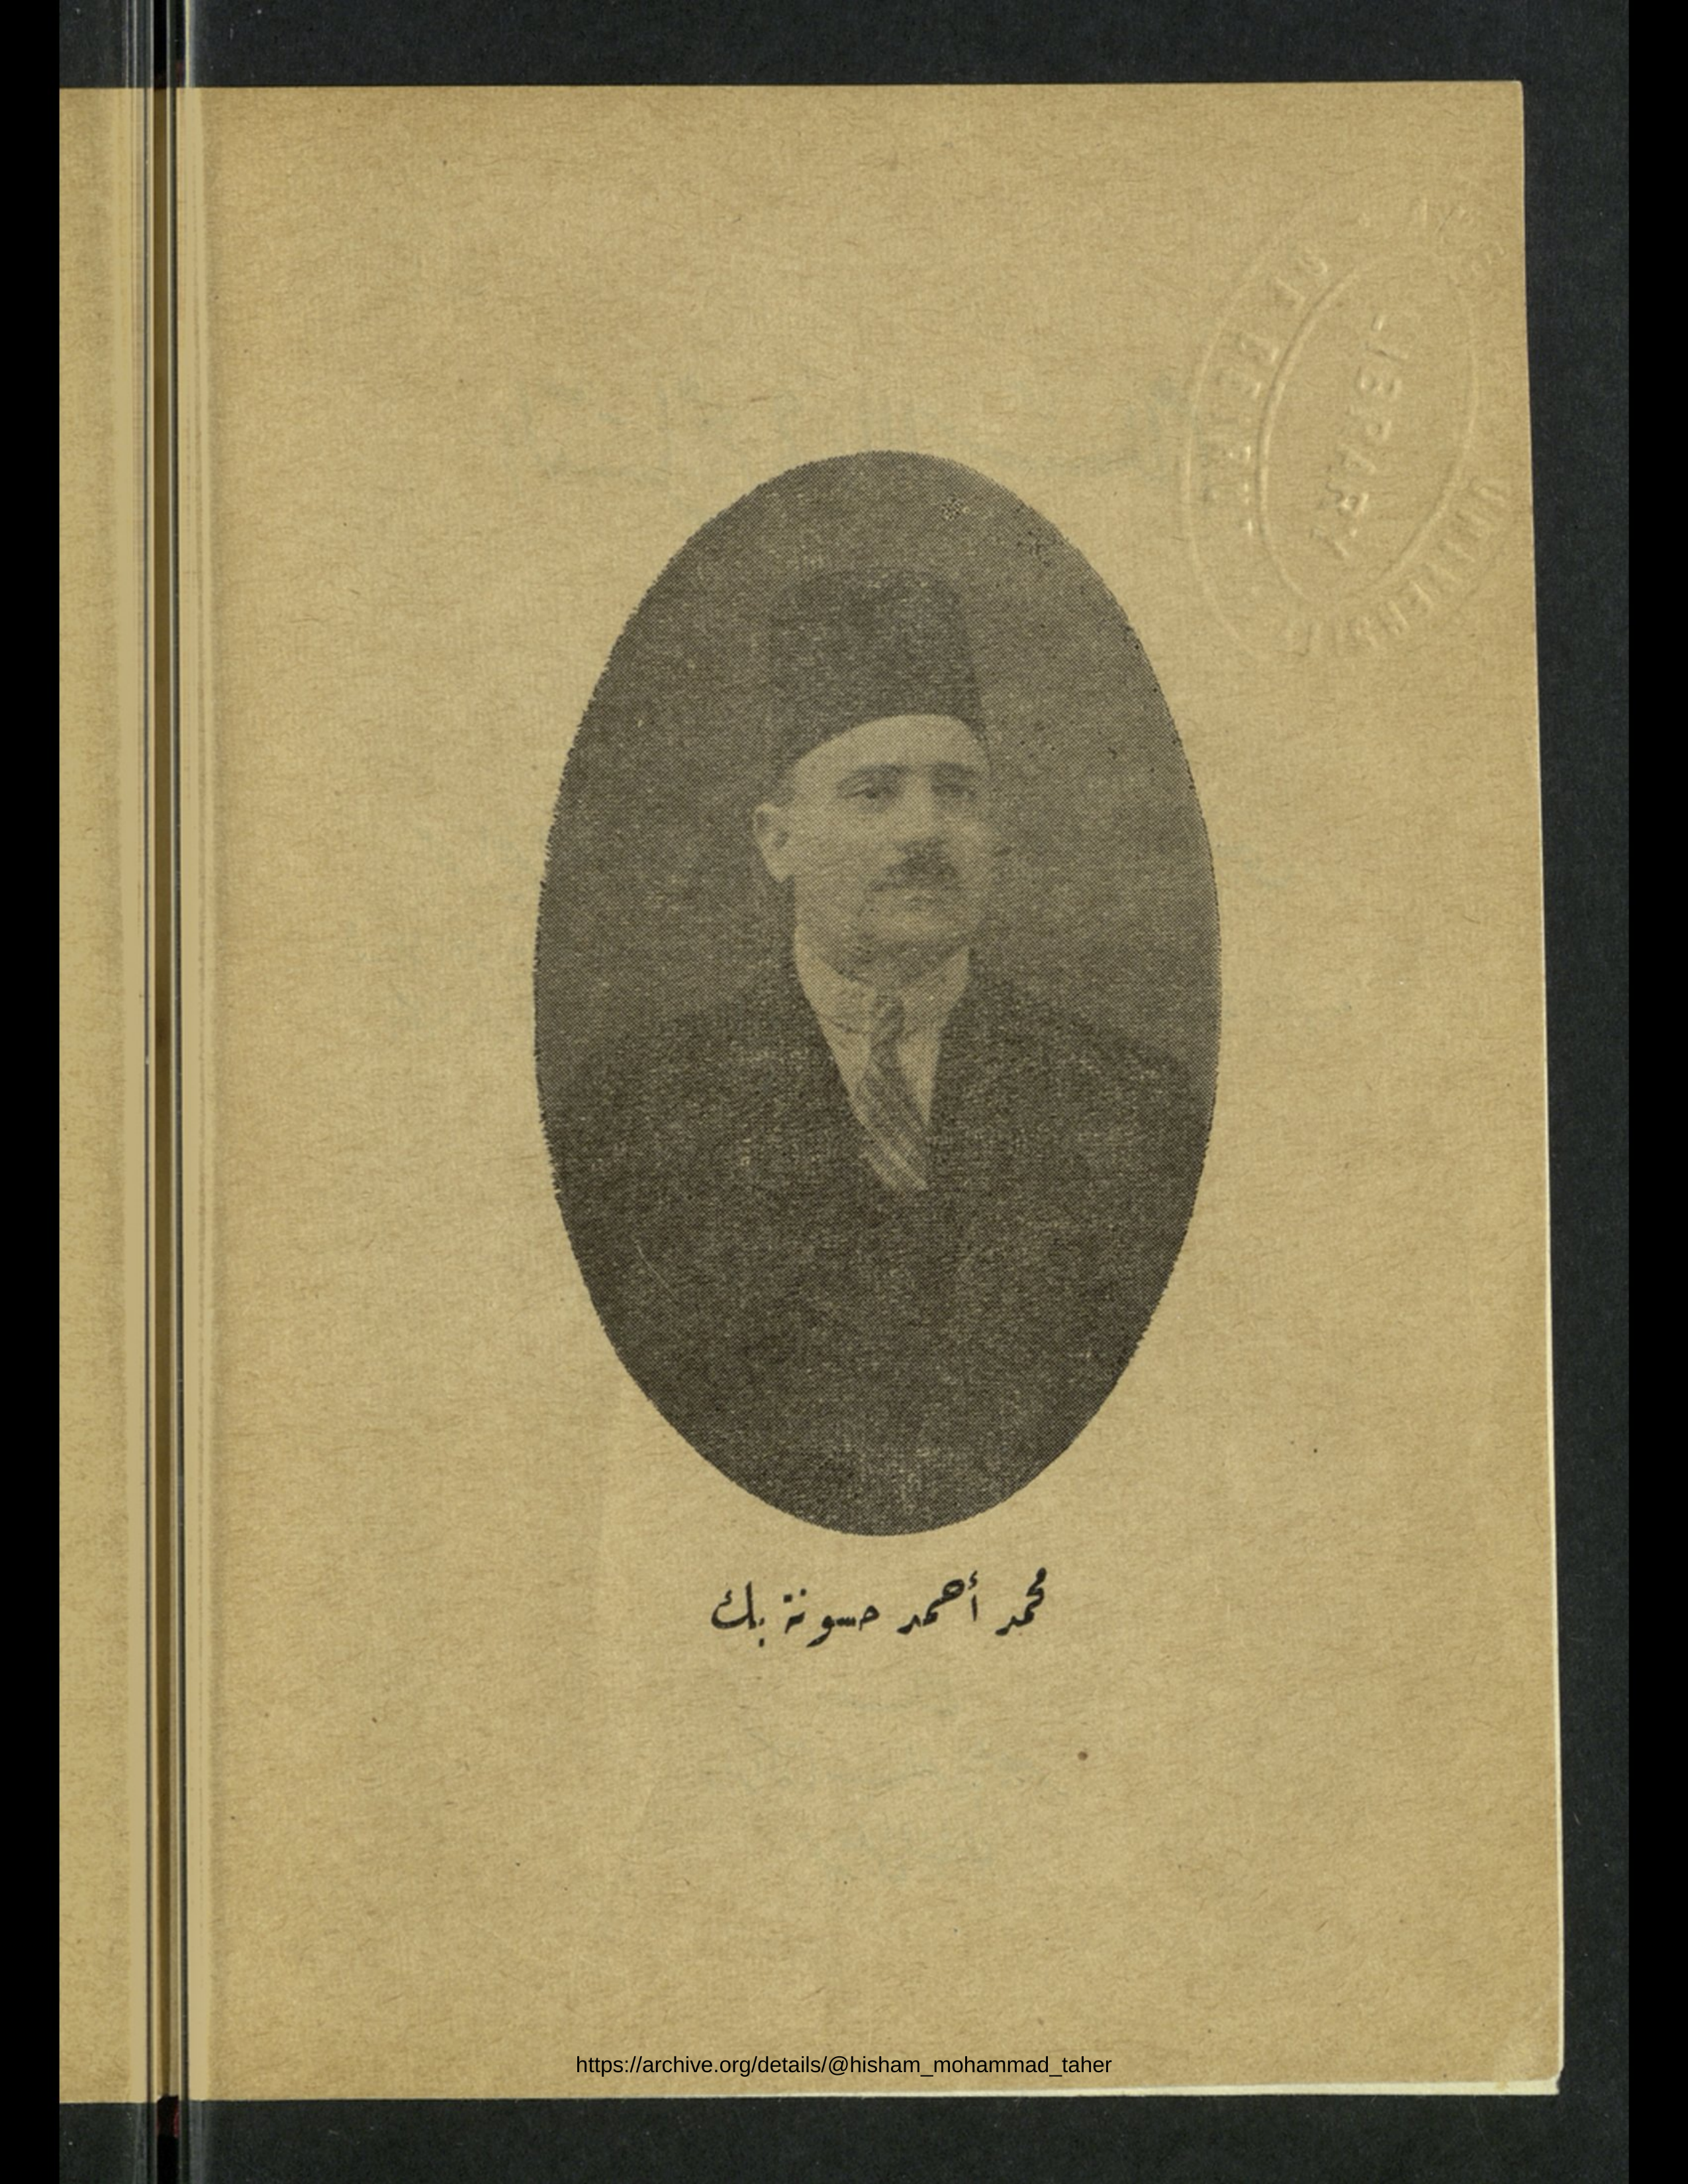 LIBRARY
محمد أحمد حسونة بك
https://archive.org/details/@hisham_mohammad_taher